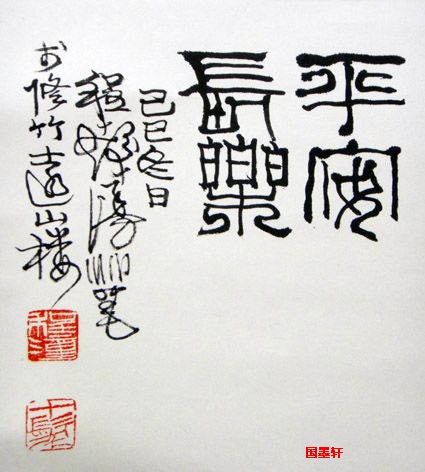 平安
長樂
己巳冬日
程十髮
於修竹遠山楼
国墨轩